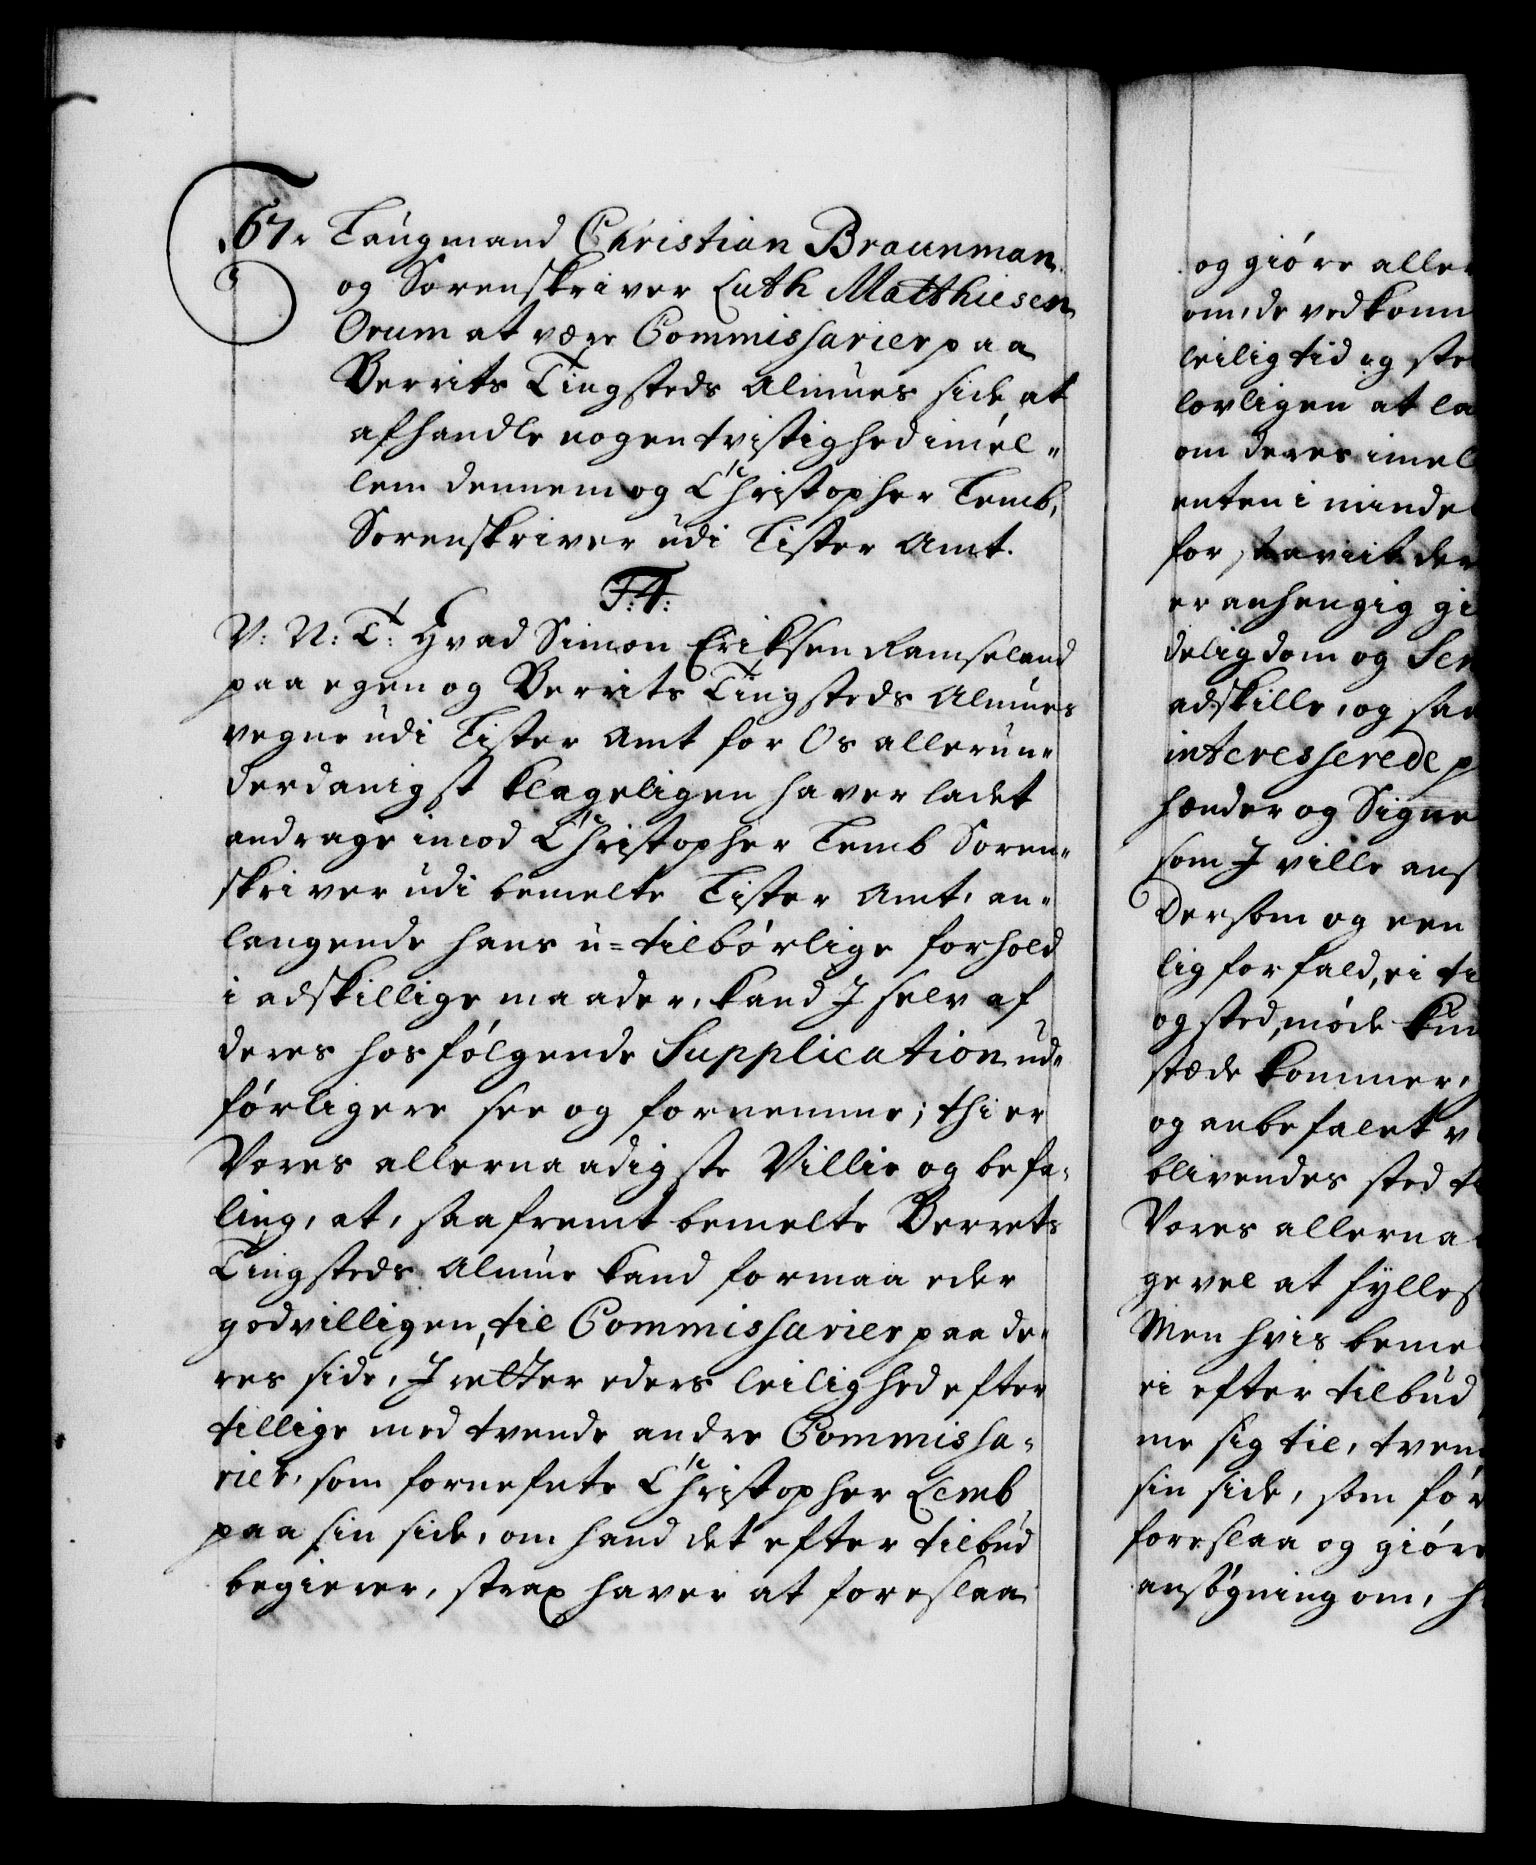 67. Laugmand Christian Braunman
og Sorenskriver Luth Matthiesen
Orum at være Commissarier paa
Berrits Tingsteds Almues side, at
afhandle nogen tvistighed imel-
lem dennem og Christopher Lemb,
Sorenskriver udi Lister Amt.
F:4:
V: N: T: Hvad Simon Eriksen Ramseland
paa egen og Berrits Tingsteds Almues
vegne udi Lister Amt for Os allerun-
derdanigst klageligen haver ladet
andrage imod Christopher Lemb Soren-
skriver udi bemelte Lister Amt, an-
langende hans u=tilbørlige forhold
i adskillige maader, kand I selv af
deres hosfølgende Supplication ud-
førligere see og fornemme; thi er
Vores allernaadigste Villie og befa-
ling, at, saafremt bemelte Berrets
Tingsteds Almue kand formaa eder
godvilligen, til Commissarier paa de-
res side, I retter eders leilighed efter
tillige med tvende andre Commissa-
rier, som fornefnte Christopher Lemb
paa sin side, om hand det efter tilbud
begierer, strax haver at foreslaa
og giøre alle
om, de vedkom
leilig tid og ste
lovligen at la
om deres imel
enten i minde
for
er anhengig gi
delig dom og Sen
adskille, og saa
interesserede p
hænder og Signe
som I ville ans
Dersom og een
lig forfald, ei ti
og sted, møde kun
stæde kommer,
og anbefalet v
blivendes sted t
Vores allerna
gevel at fylles
Men hvis beme
ei efter tilbud
me sig til, tven
sin side, som før
foreslaa og giøre
ansøgning om, h